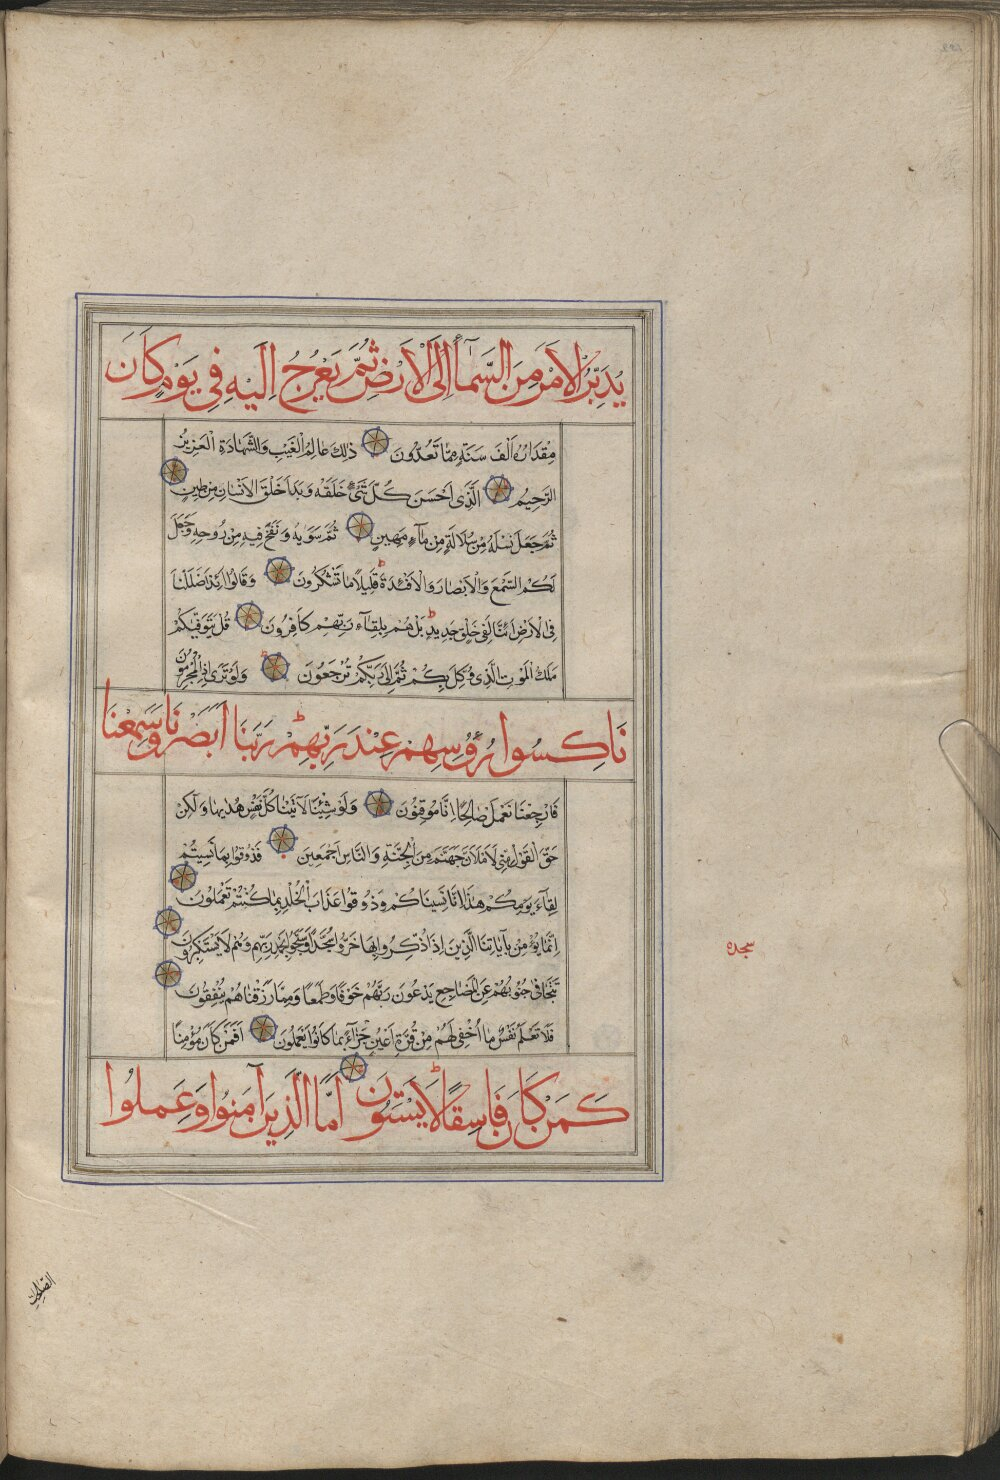 يُدَبِّرُ الْاَمْرَ مِنَ السَّمَآءِ اِلَى الْاَرْضِ ثُمَّ يَعْرُجُ اِلَيْهِ فِى يَوْمٍ كَانَ
مِقْدَارُهُ اَلْفَ سَنَةٍ مِمَّا تَعُدُّونَ ذٰلِكَ عَالِمُ الْغَيْبِ وَالشَّهَادَةِ الْعَزِيزُ
الرَّحِيمُ الَّذِى اَحْسَنَ كُلَّ شَىْءٍ خَلَقَهُ وَبَدَاَ خَلْقَ الْاِنْسَانِ مِنْ طِينٍ
ثُمَّ جَعَلَ نَسْلَهُ مِنْ سُلَالَةٍ مِنْ مَآءٍ مَهِينٍ ثُمَّ سَوّٰيهُ وَنَفَخَ فِيهِ مِنْ رُوحِهِ وَجَعَلَ
لَكُمُ السَّمْعَ وَالْاَبْصَارَ وَالْاَفْئِدَةَ قَلِيلًا مَا تَشْكُرُونَ وَقَالُوا اَئِذَا ضَلَلْنَا
فِى الْاَرْضِ اَئِنَّا لَفِى خَلْقٍ جَدِيدٍ بَلْ هُمْ بِلِقَآءِ رَبِّهِمْ كَافِرُونَ قُلْ يَتَوَفّٰيكُمْ
مَلَكُ الْمَوْتِ الَّذِى وُكِّلَ بِكُمْ ثُمَّ اِلٰى رَبِّكُمْ تُرْجَعُونَ وَلَوْ تَرٰى اِذِ الْمُجْرِمُونَ
نَاكِسُوا رُؤُسِهِمْ عِنْدَ رَبِّهِمْ رَبَّنَا اَبْصَرْنَا وَسَمِعْنَا
فَارْجِعْنَا نَعْمَلْ صَالِحًا اِنَّا مُوقِنُونَ وَلَوْ شِئْنَا لَآتَيْنَا كُلَّ نَفْسٍ هُدٰيهَا وَلٰكِنْ
حَقَّ الْقَوْلُ مِنِّى لَاَمْلَاَنَّ جَهَنَّمَ مِنَ الْجِنَّةِ وَالنَّاسِ اَجْمَعِينَ فَذُوقُوا بِمَا نَسِيتُمْ
لِقَآءَ يَوْمِكُمْ هٰذَا اِنَّا نَسِينَاكُمْ وَذُوقُوا عَذَابَ الْخُلْدِ بِمَا كُنْتُمْ تَعْمَلُونَ
اِنَّمَا يُؤْمِنُ بِآيَاتِنَا الَّذِينَ اِذَا ذُكِّرُوا بِهَا خَرُّوا سُجَّدًا وَسَبَّحُوا بِحَمْدِ رَبِّهِمْ وَهُمْ لَا يَسْتَكْبِرُونَ
سجده
تَتَجَافٰى جُنُوبُهُمْ عَنِ الْمَضَاجِعِ يَدْعُونَ رَبَّهُمْ خَوْفًا وَطَمَعًا وَمِمَّا رَزَقْنَاهُمْ يُنْفِقُونَ
فَلَا تَعْلَمُ نَفْسٌ مَا اُخْفِىَ لَهُمْ مِنْ قُرَّةِ اَعْيُنٍ جَزَآءً بِمَا كَانُوا يَعْمَلُونَ اَفَمَنْ كَانَ مُؤْمِنًا
كَمَنْ كَانَ فَاسِقًا لَا يَسْتَوُونَ اَمَّا الَّذِينَ آمَنُوا وَعَمِلُوا
الصّالحات